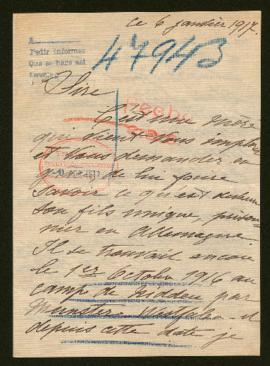 ce 6 janvier 1917.
A
Pedir informes
Que se hará así
47943
Sire
C'est une mère
qui vient vous implorer
et vous demander en
grâce de lui faire
savoir ce qu'est devenu
son fils unique, prison-
nier en Allemagne.
Il se trouvait encore
le 1er Octobre 1916 au
camp de
par
Munster Westfalen et
depuis cette date je